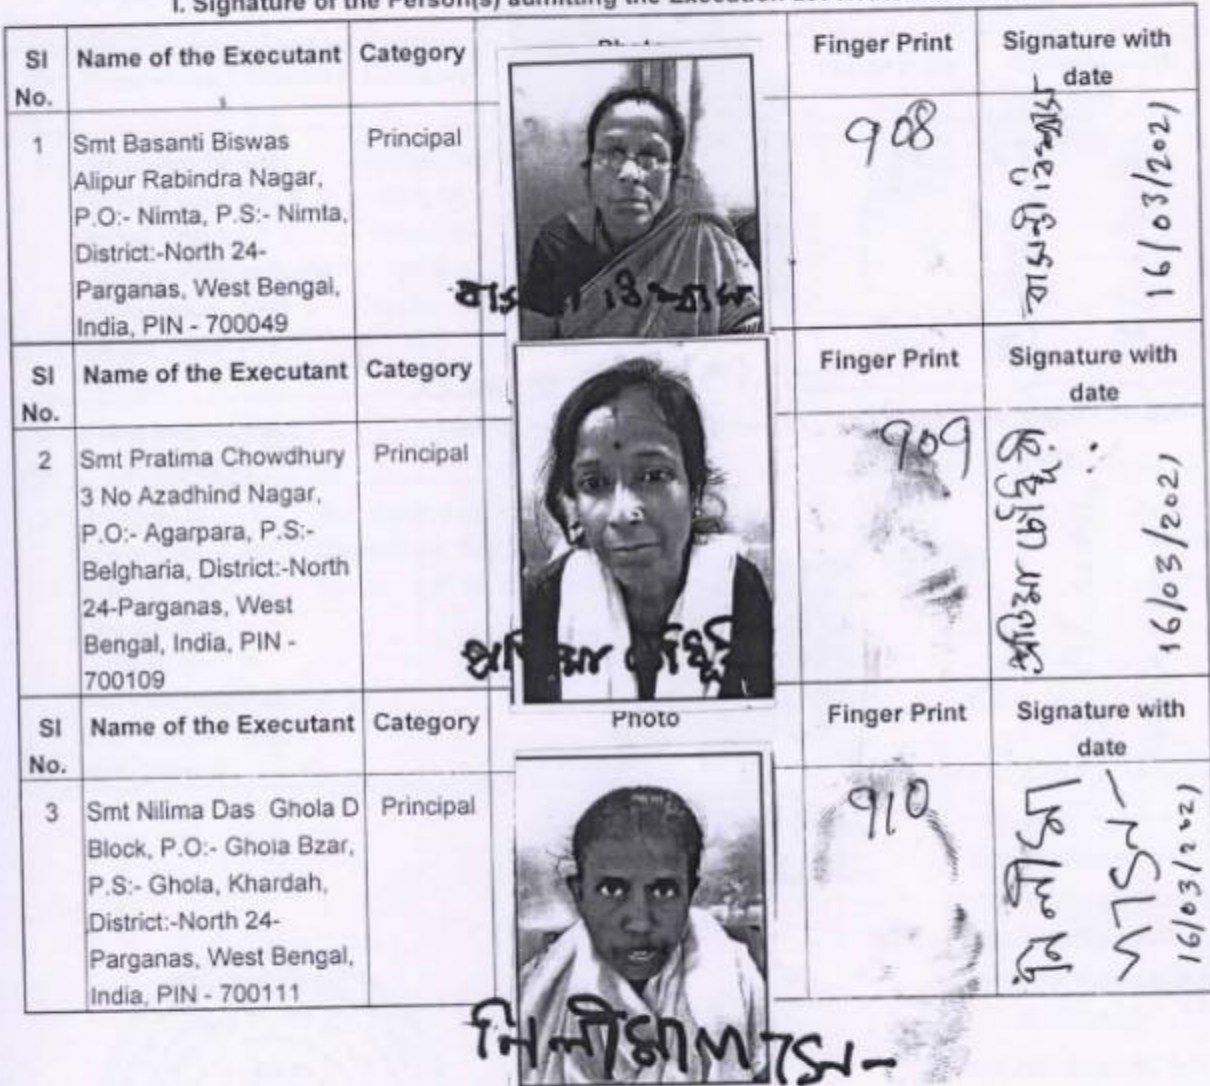 I. Signature of the Person(s) admitting the Execution
Sl No. Name of the Executant Category Finger Print Signature with date
1 Smt Basanti Biswas Principal 908
Alipur Rabindra Nagar,
P.O:- Nimta, P.S:- Nimta,
District:-North 24-
Parganas, West Bengal,
India, PIN - 700049
বাসন্তী বিশ্বাস
16/03/2021
বাসন্তী বিশ্বাস
Sl No. Name of the Executant Category Finger Print Signature with date
2 Smt Pratima Chowdhury Principal 909
3 No Azadhind Nagar,
P.O:- Agarpara, P.S:-
Belgharia, District:-North
24-Parganas, West
Bengal, India, PIN -
700109
প্রতিমা চৌধুরী
16/03/2021
প্রতিমা চৌধুরী
Sl No. Name of the Executant Category Photo Finger Print Signature with date
3 Smt Nilima Das Ghola D Principal 910
Block, P.O:- Ghola Bzar,
P.S:- Ghola, Khardah,
District:-North 24-
Parganas, West Bengal,
India, PIN - 700111
16/03/2021
নিলীমা দাস